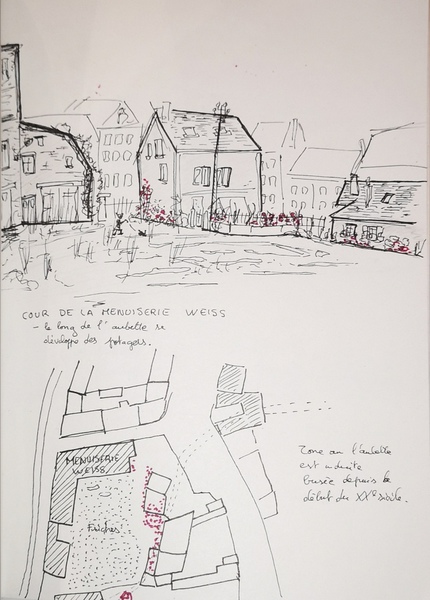 COUR DE LA MENUISERIE WEISS
- le long de l'aubette se
développe des potagers.
MENUISERIE
WEISS
Friches
Zone où l'aubette
est
busée depuis le
début du XXe siècle.